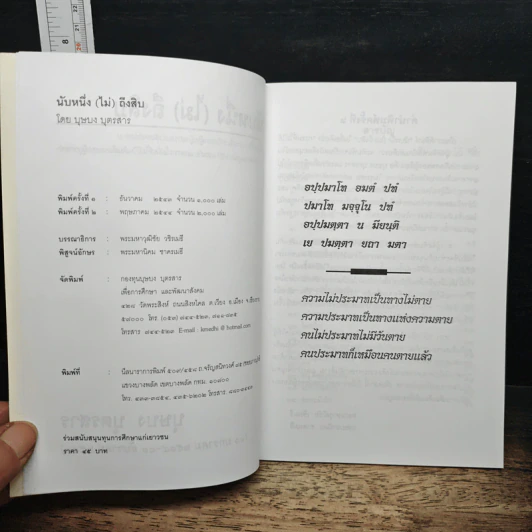 นับหนึ่ง (ไม่) ถึงสิบ
โดย บุษบง บุตรสาร
พิมพ์ครั้งที่ ๑ : ธันวาคม ๒๕๔๓ จำนวน ๑,๐๐๐ เล่ม
พิมพ์ครั้งที่ ๒ : พฤษภาคม ๒๕๔๔ จำนวน ๒,๐๐๐ เล่ม
บรรณาธิการ : พระมหาวุฒิชัย วชิรเมธี
พิสูจน์อักษร : พระมหานิคม
จัดพิมพ์ : กองทุนบุษบง บุตรสาร
เพื่อการศึกษา และพัฒนาสังคม
วัดพระสิงห์ ถนนสิงหไคล ต.เวียง อ.เมือง
๕๗๐๐๐ โทร.
โทรสาร E-mail : hotmail.com
พิมพ์ที่ :
แขวงบางพลัด เขตบางพลัด กทม. ๑๐๗๐๐
โทร. โทรสาร.
ร่วมสนับสนุนทุนการศึกษาแก่เยาวชน
ราคา ๔๕ บาท
อปฺปมาโท อมตํ ปทํ
ปมาโท มจฺจุโน ปทํ
อปฺปมตฺตา น มียนฺติ
เย ปมตฺตา ยถา มตา
ความไม่ประมาทเป็นทางไม่ตาย
ความประมาทเป็นทางแห่งความตาย
คนไม่ประมาทไม่มีวันตาย
คนประมาทก็เหมือนคนตายแล้ว